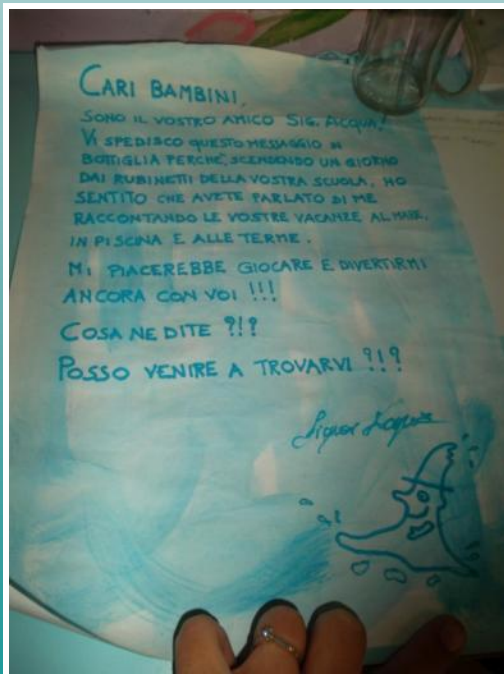 CARI BAMBINI,
SONO IL VOSTRO AMICO SIG. ACQUA!
VI SPEDISCO QUESTO MESSAGGIO IN
BOTTIGLIA PERCHÈ, SCENDENDO UN GIORNO
DAI RUBINETTI DELLA VOSTRA SCUOLA, HO
SENTITO CHE AVETE PARLATO DI ME
RACCONTANDO LE VOSTRE VACANZE AL MARE,
IN PISCINA E ALLE TERME.
MI PIACEREBBE GIOCARE E DIVERTIRMI
ANCORA CON VOI !!!
COSA NE DITE ?!?
POSSO VENIRE A TROVARVI ?!?
Signor Acqua